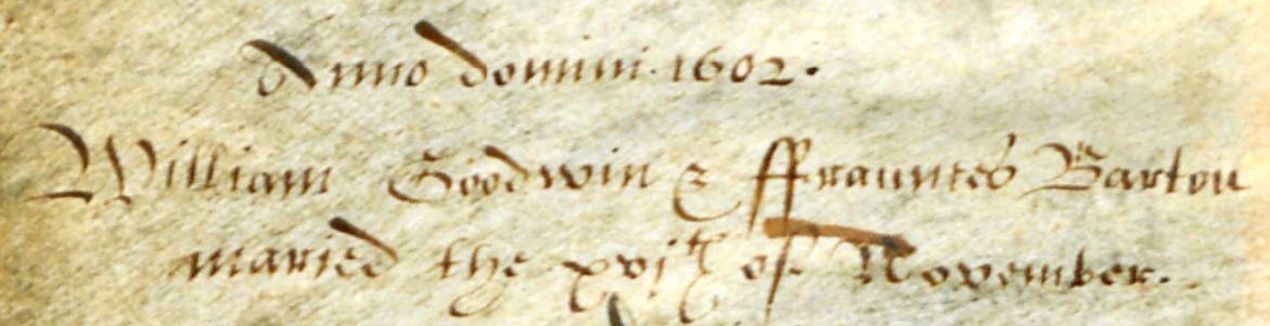 Anno domini. 1602.
William Goodwin & ffraunces Barton
maried the xvjth of November.